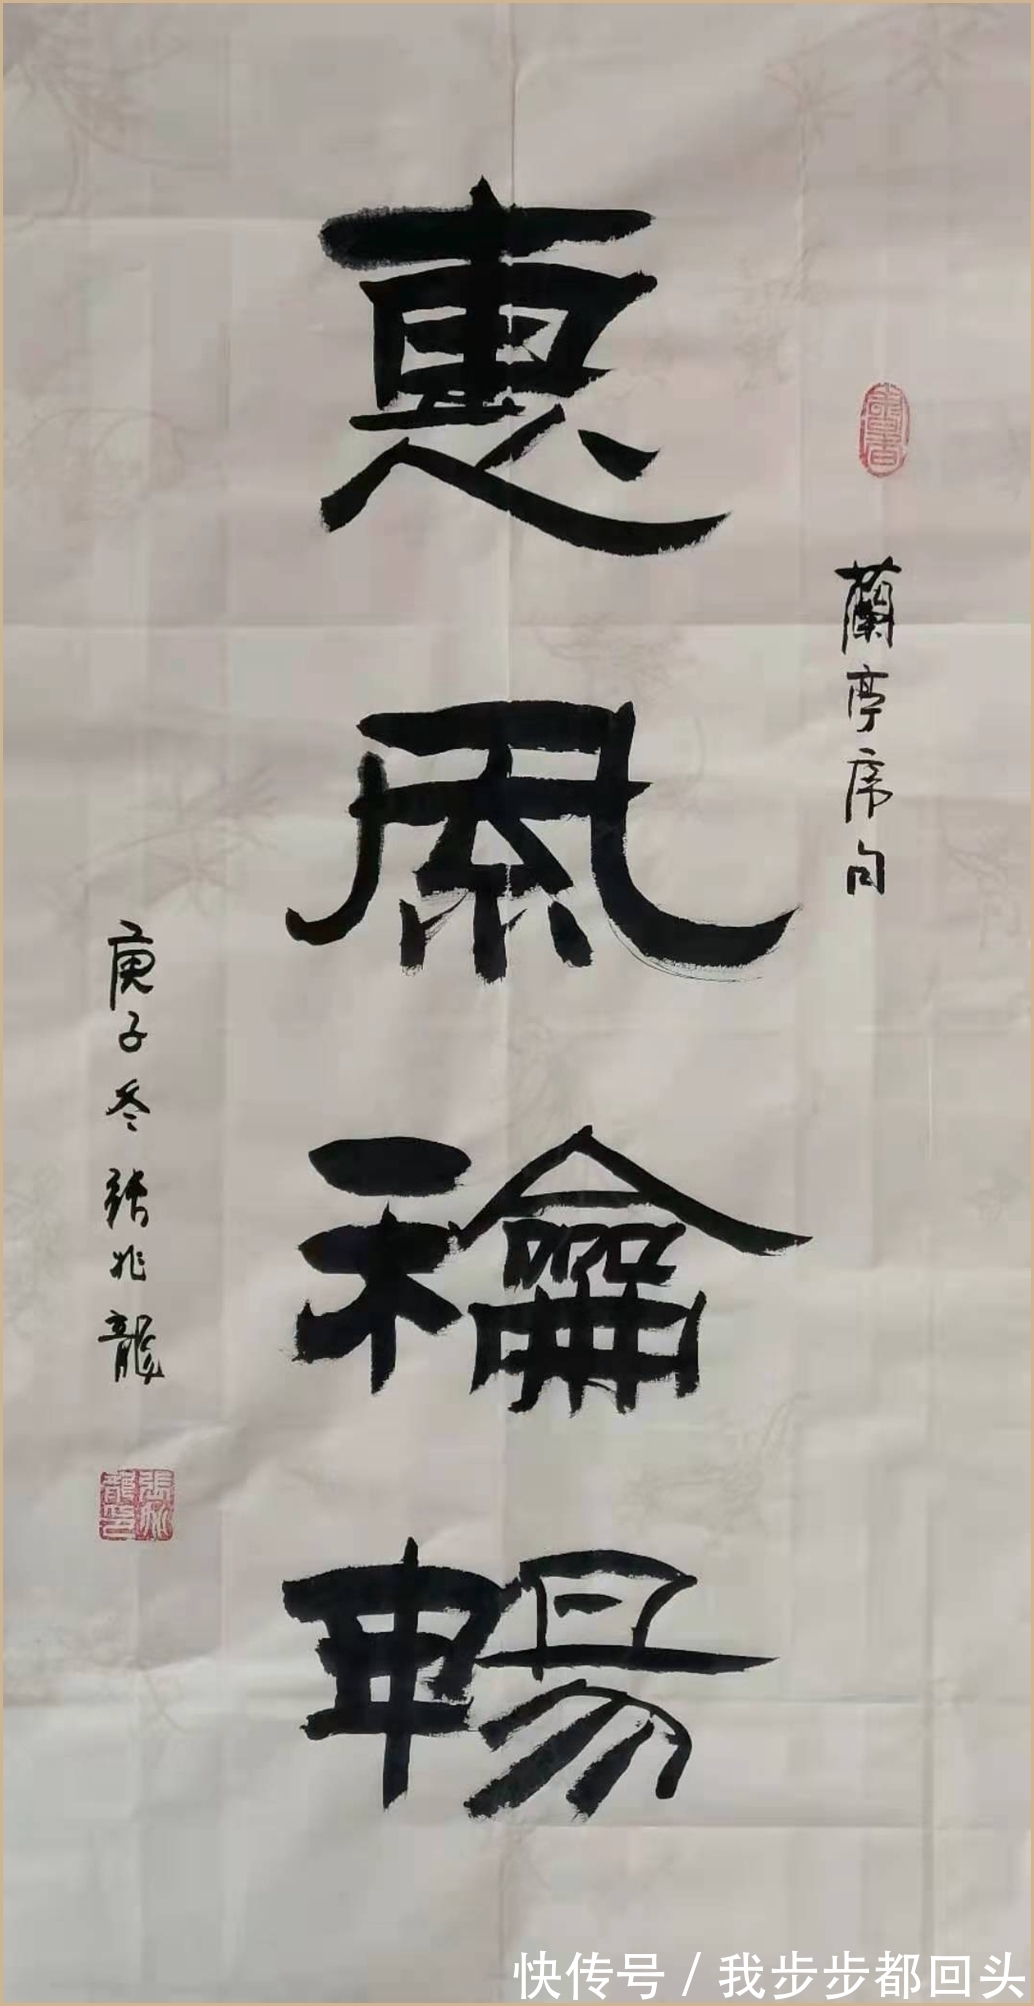 書香
蘭亭席句
惠風龢暢
庚子冬張兆龍
張兆龍印
快传号 / 我步步都回头